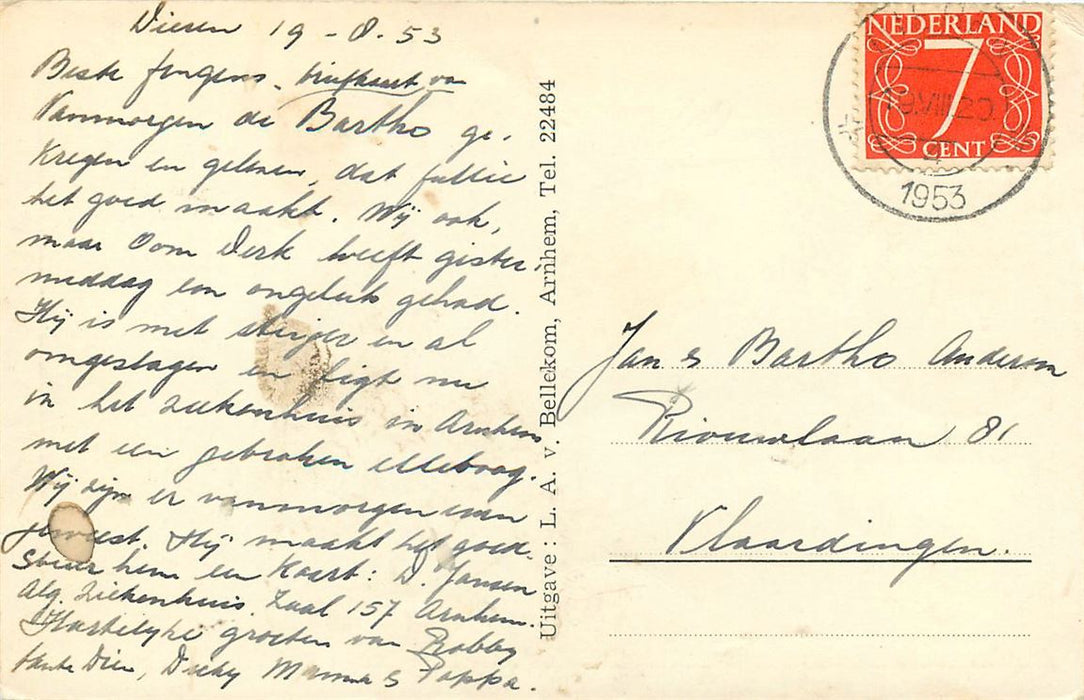 Dieren 19-8-53
Beste Jongens, briefkaart van
Vanmorgen de Bartho ge-
kregen en gelezen, dat jullie
het goed maakt. Wij ook,
maar Oom Derk heeft gister-
middag een ongeluk gehad.
Hij is met steiger en al
omgeslagen en ligt nu
in het ziekenhuis in Arnhem
met een gebroken elleboog.
Wij zijn er vanmorgen even
geweest. Hij maakt het goed.
Stuur hem een kaart: D. Jansen
Alg. Ziekenhuis. Zaal 157 Arnhem.
Hartelijke groeten van Robby
tante Dien, Dicky Mamma & Pappa.
Uitgave: L. A. v. Bellekom, Arnhem, Tel. 22484
NEDERLAND
7
CENT
1953
Jan & Bartho
Riouwlaan 81
Vlaardingen.